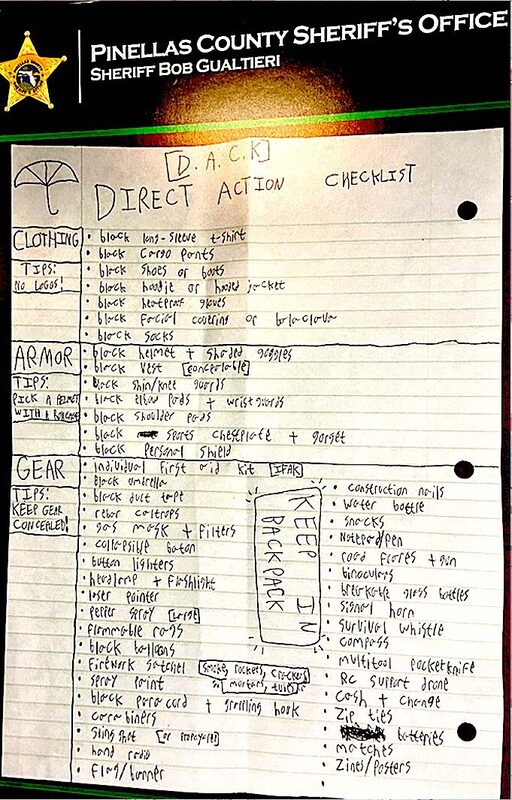 PINELLAS COUNTY SHERIFF'S OFFICE
SHERIFF BOB GUALTIERI
[D.A.C.K]
DIRECT ACTION CHECKLIST
CLOTHING
TIPS:
NO LOGOS!
• black long-sleeve t-shirt
• black cargo pants
• black shoes or boots
• black hoodie or hooded jacket
• black heatproof gloves
• black facial covering or balaclava
• black socks
ARMOR
TIPS:
PICK A HELMET
WITH A
• black helmet + shaded goggles
• black vest [concealable]
• black shin/knee guards
• black elbow pads + wrist guards
• black shoulder pads
• black sports chestplate + gorget
• black personal shield
GEAR
TIPS:
KEEP GEAR
CONCEALED!
• individual first aid kit [IFAK]
• black umbrella
• black duct tape
• rebar caltrops
• gas mask + filters
• collapsible baton
• button lighters
• headlamp + flashlight
• laser pointer
• pepper spray [large]
• flammable rags
• black balloons
• firework satchel [smoke, rockets, crackers
mortars,
• spray paint
• black paracord + grappling hook
• carabiners
• slingshot
• hand radio
• flag/banner
KEEP IN
BACKPACK
• construction nails
• water bottle
• snacks
• Notepad/pen
• road flares + gun
• binoculars
• breakable glass bottles
• signal horn
• survival whistle
• compass
• multitool pocketknife
• RC support drone
• cash + change
• zip ties
• batteries
• matches
• zines/posters